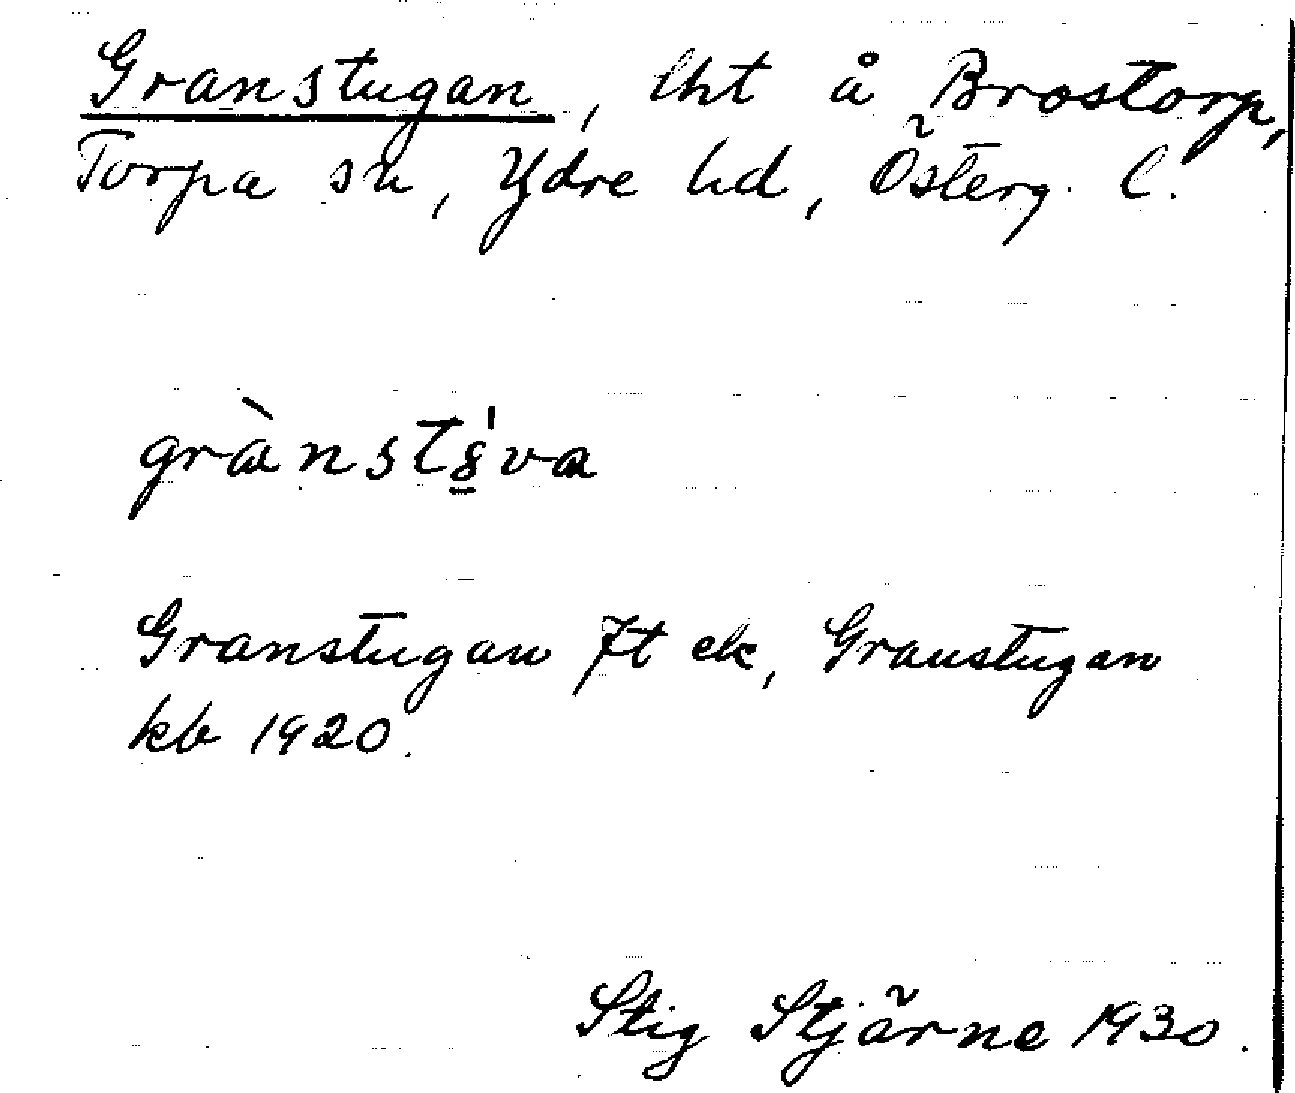 Granstugan, lht å Brostorp,
Torpa sn, Ydre hd, Österg. l.
grànst8̲'va
Granstugan Jt ek, Granstugan
kb 1920.
Stig Stjärne 1930.